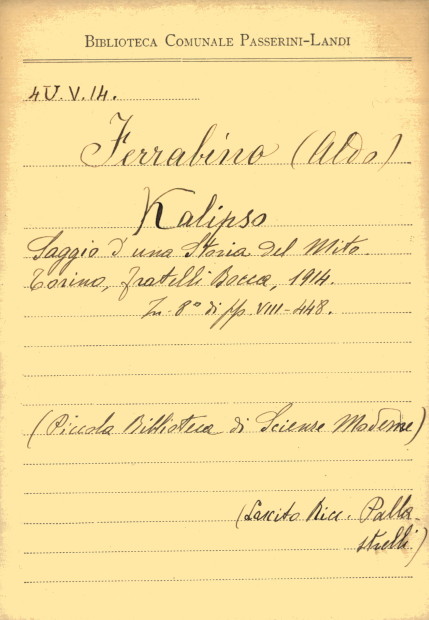 BIBLIOTECA COMUNALE PASSERINI-LANDI
4U.V.14.
Ferrabino (Aldo)
Kalipso
Saggio d'una Storia del Mito.
Torino, fratelli Bocca, 1914.
In-8º di pp. VIII-448.
(Piccola Biblioteca di Scienze Moderne)
(Lascito Ricc. Palla-
strelli)